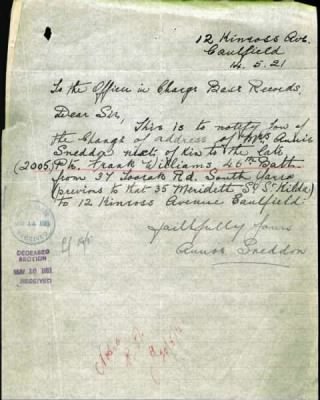 12 Kinross Ave.
Caulfield
14.5.21
To the Officer in Charge Base Records,
Dear Sir,
This is to notify you of
the Change of address of Mrs Annie
Sneddon next of kin to the late
(2005) Pte. Frank Williams 46th Battn
from 37 Toorak Rd. South Yarra
(previous to that 35 Merideth St St Kilda)
to 12 Kinross Avenue Caulfield.
Faithfully Yours
Annie Sneddon
DECEASED
SECTION
MAY 20 1921
RECEIVED